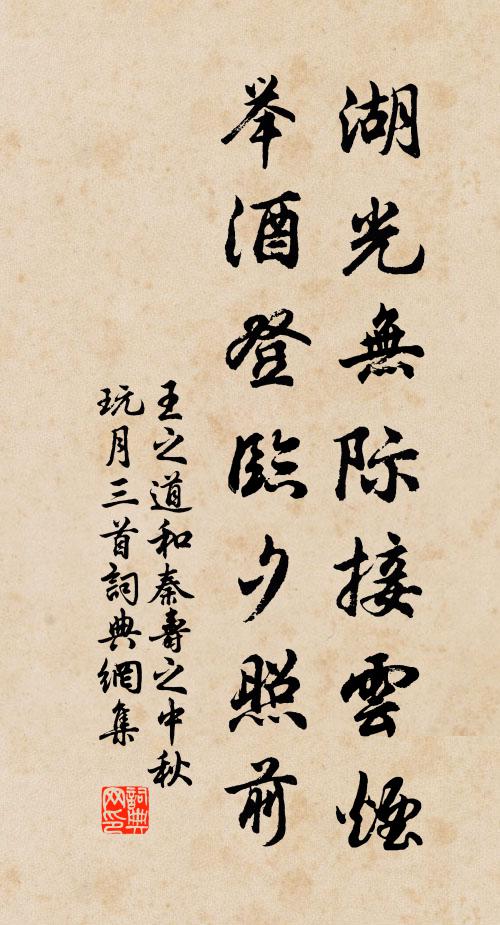 湖光無际接雲煙
举酒登臨夕照前
王之道和秦壽之中秋
玩月三首詞典網集
詞典网印